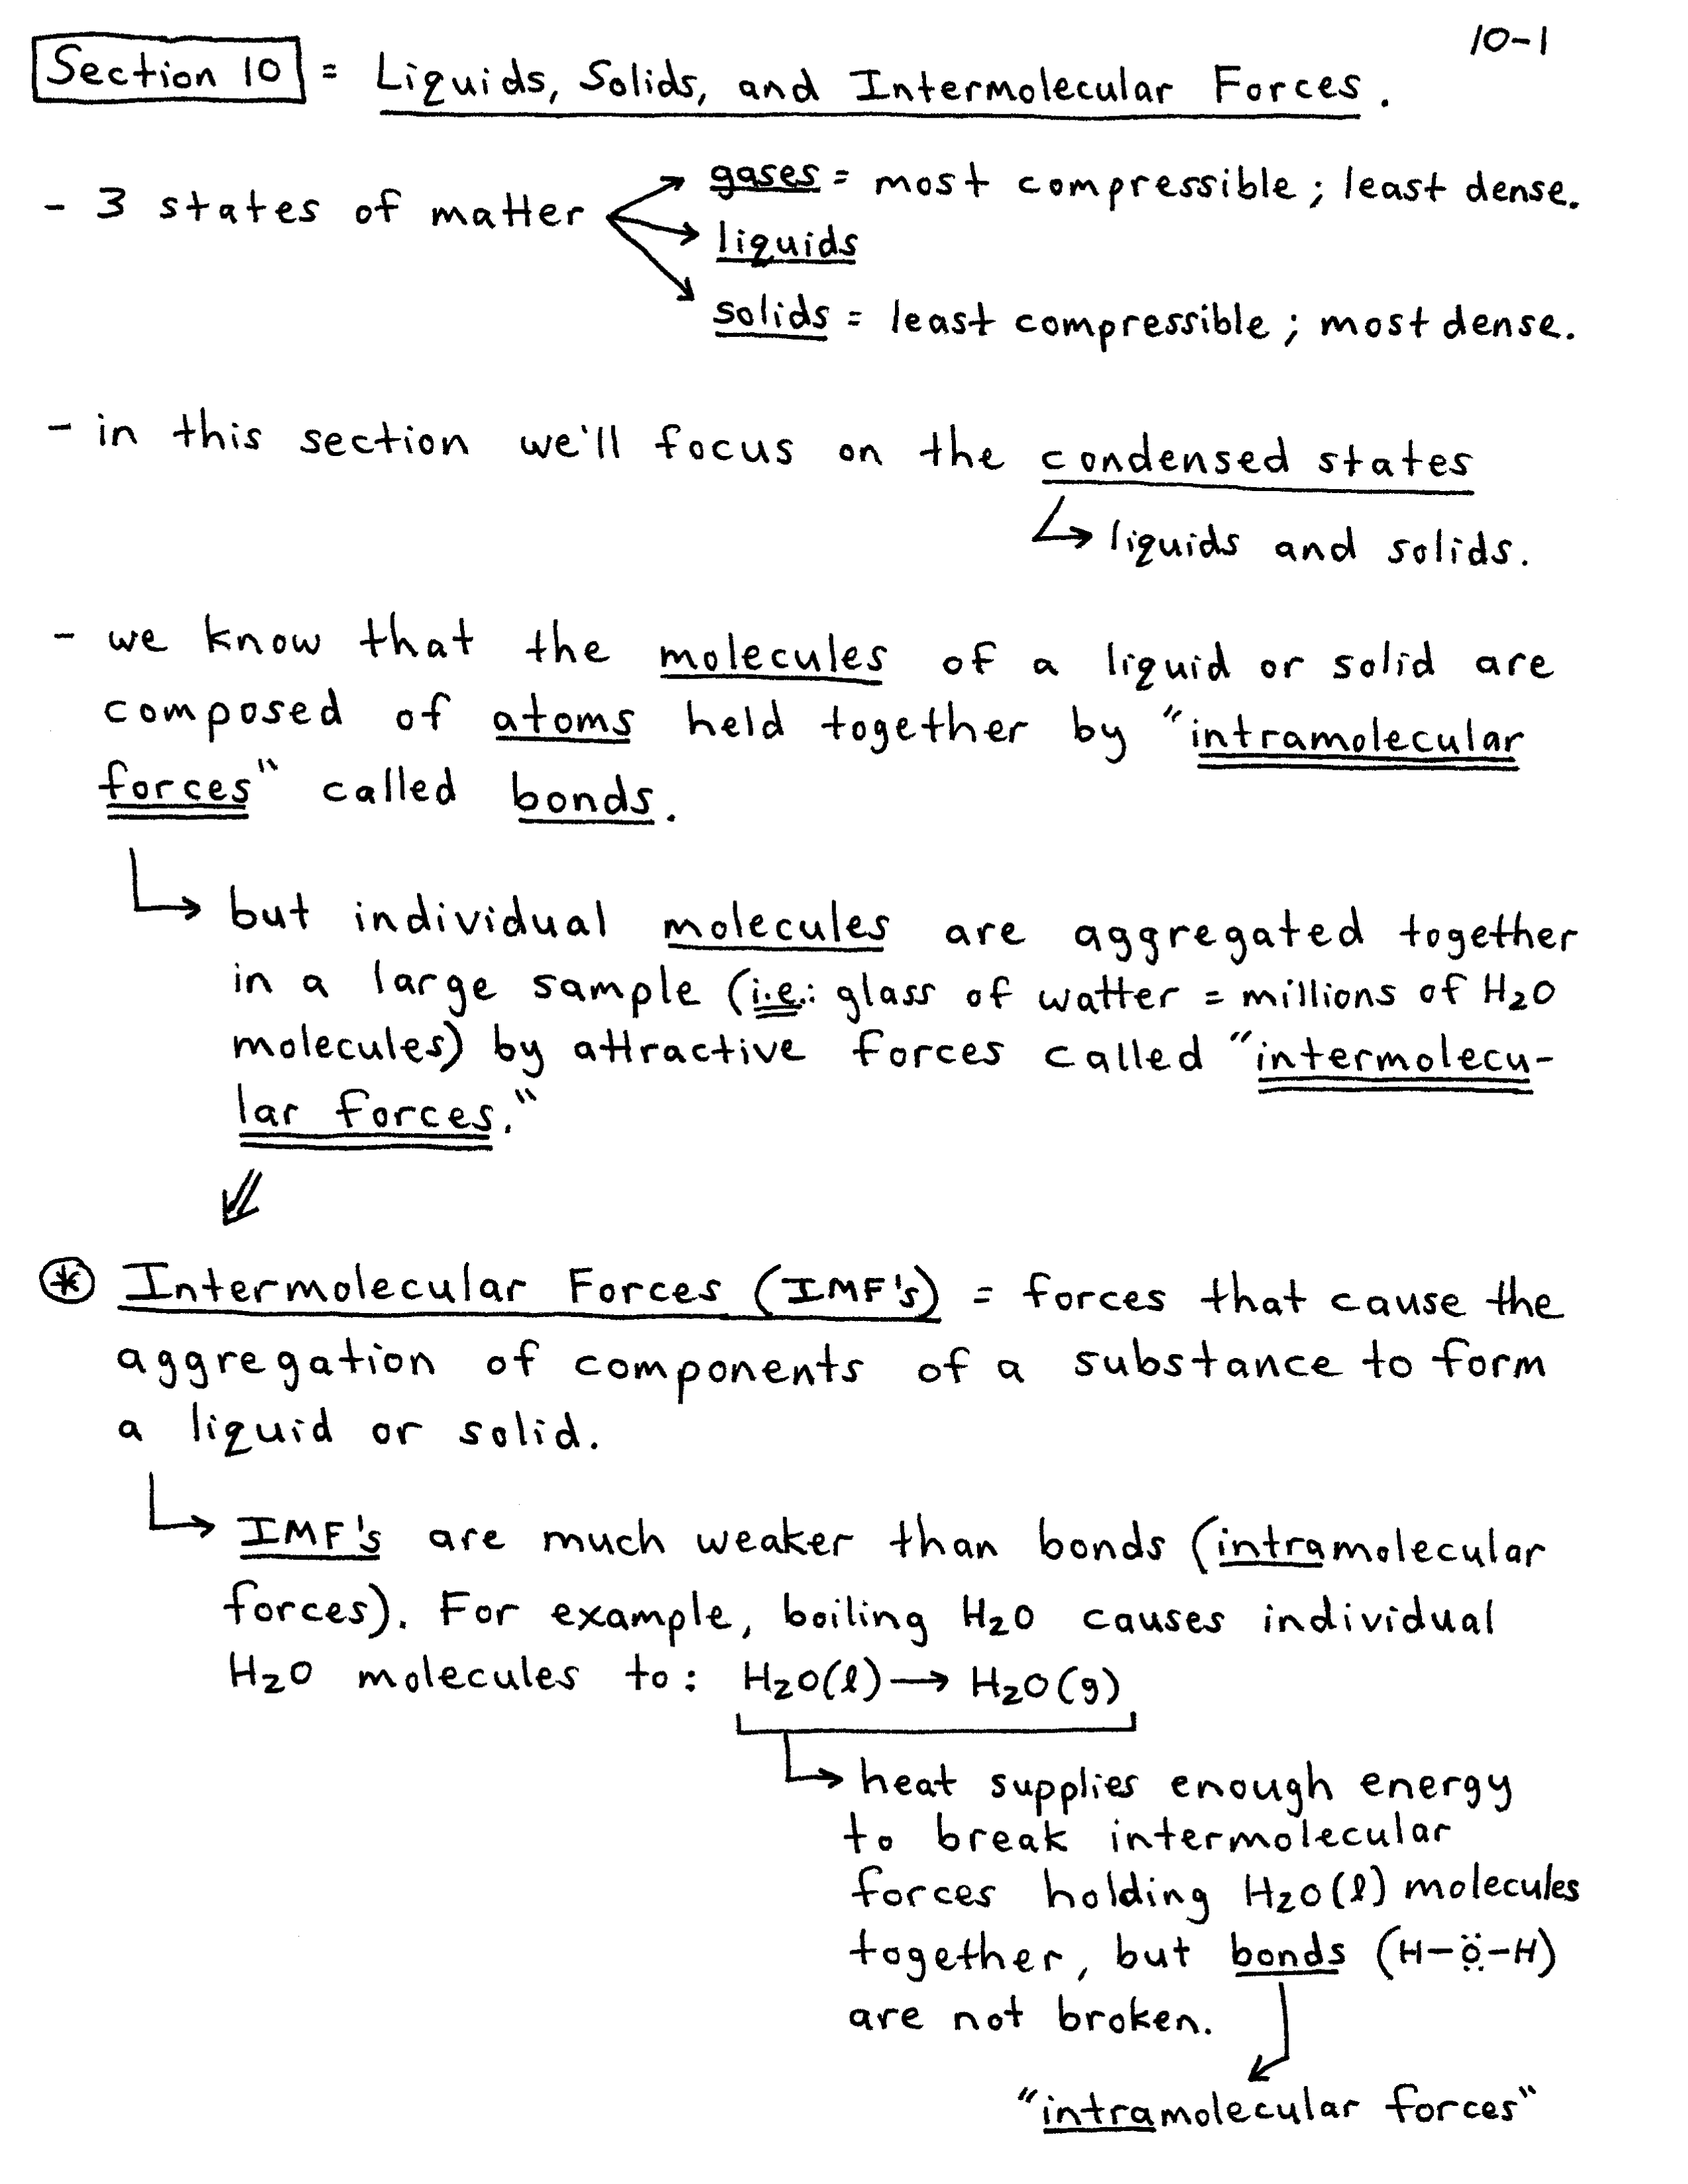 10-1
Section 10 = Liquids, Solids, and Intermolecular Forces.
- 3 states of matter
gases = most compressible; least dense.
liquids
solids = least compressible; most dense.
- in this section we'll focus on the condensed states
liquids and solids.
- we know that the molecules of a liquid or solid are
composed of atoms held together by "intramolecular
forces" called bonds.
but individual molecules are aggregated together
in a large sample (i.e.: glass of watter = millions of H₂O
molecules) by attractive forces called "intermolecu-
lar forces."
* Intermolecular Forces (IMF's) = forces that cause the
aggregation of components of a substance to form
a liquid or solid.
IMF's are much weaker than bonds (intramolecular
forces). For example, boiling H₂O causes individual
H₂O molecules to: H₂O(l) → H₂O(g)
heat supplies enough energy
to break intermolecular
forces holding H₂O(l) molecules
together, but bonds (H-Ö-H)
are not broken.
"intramolecular forces"